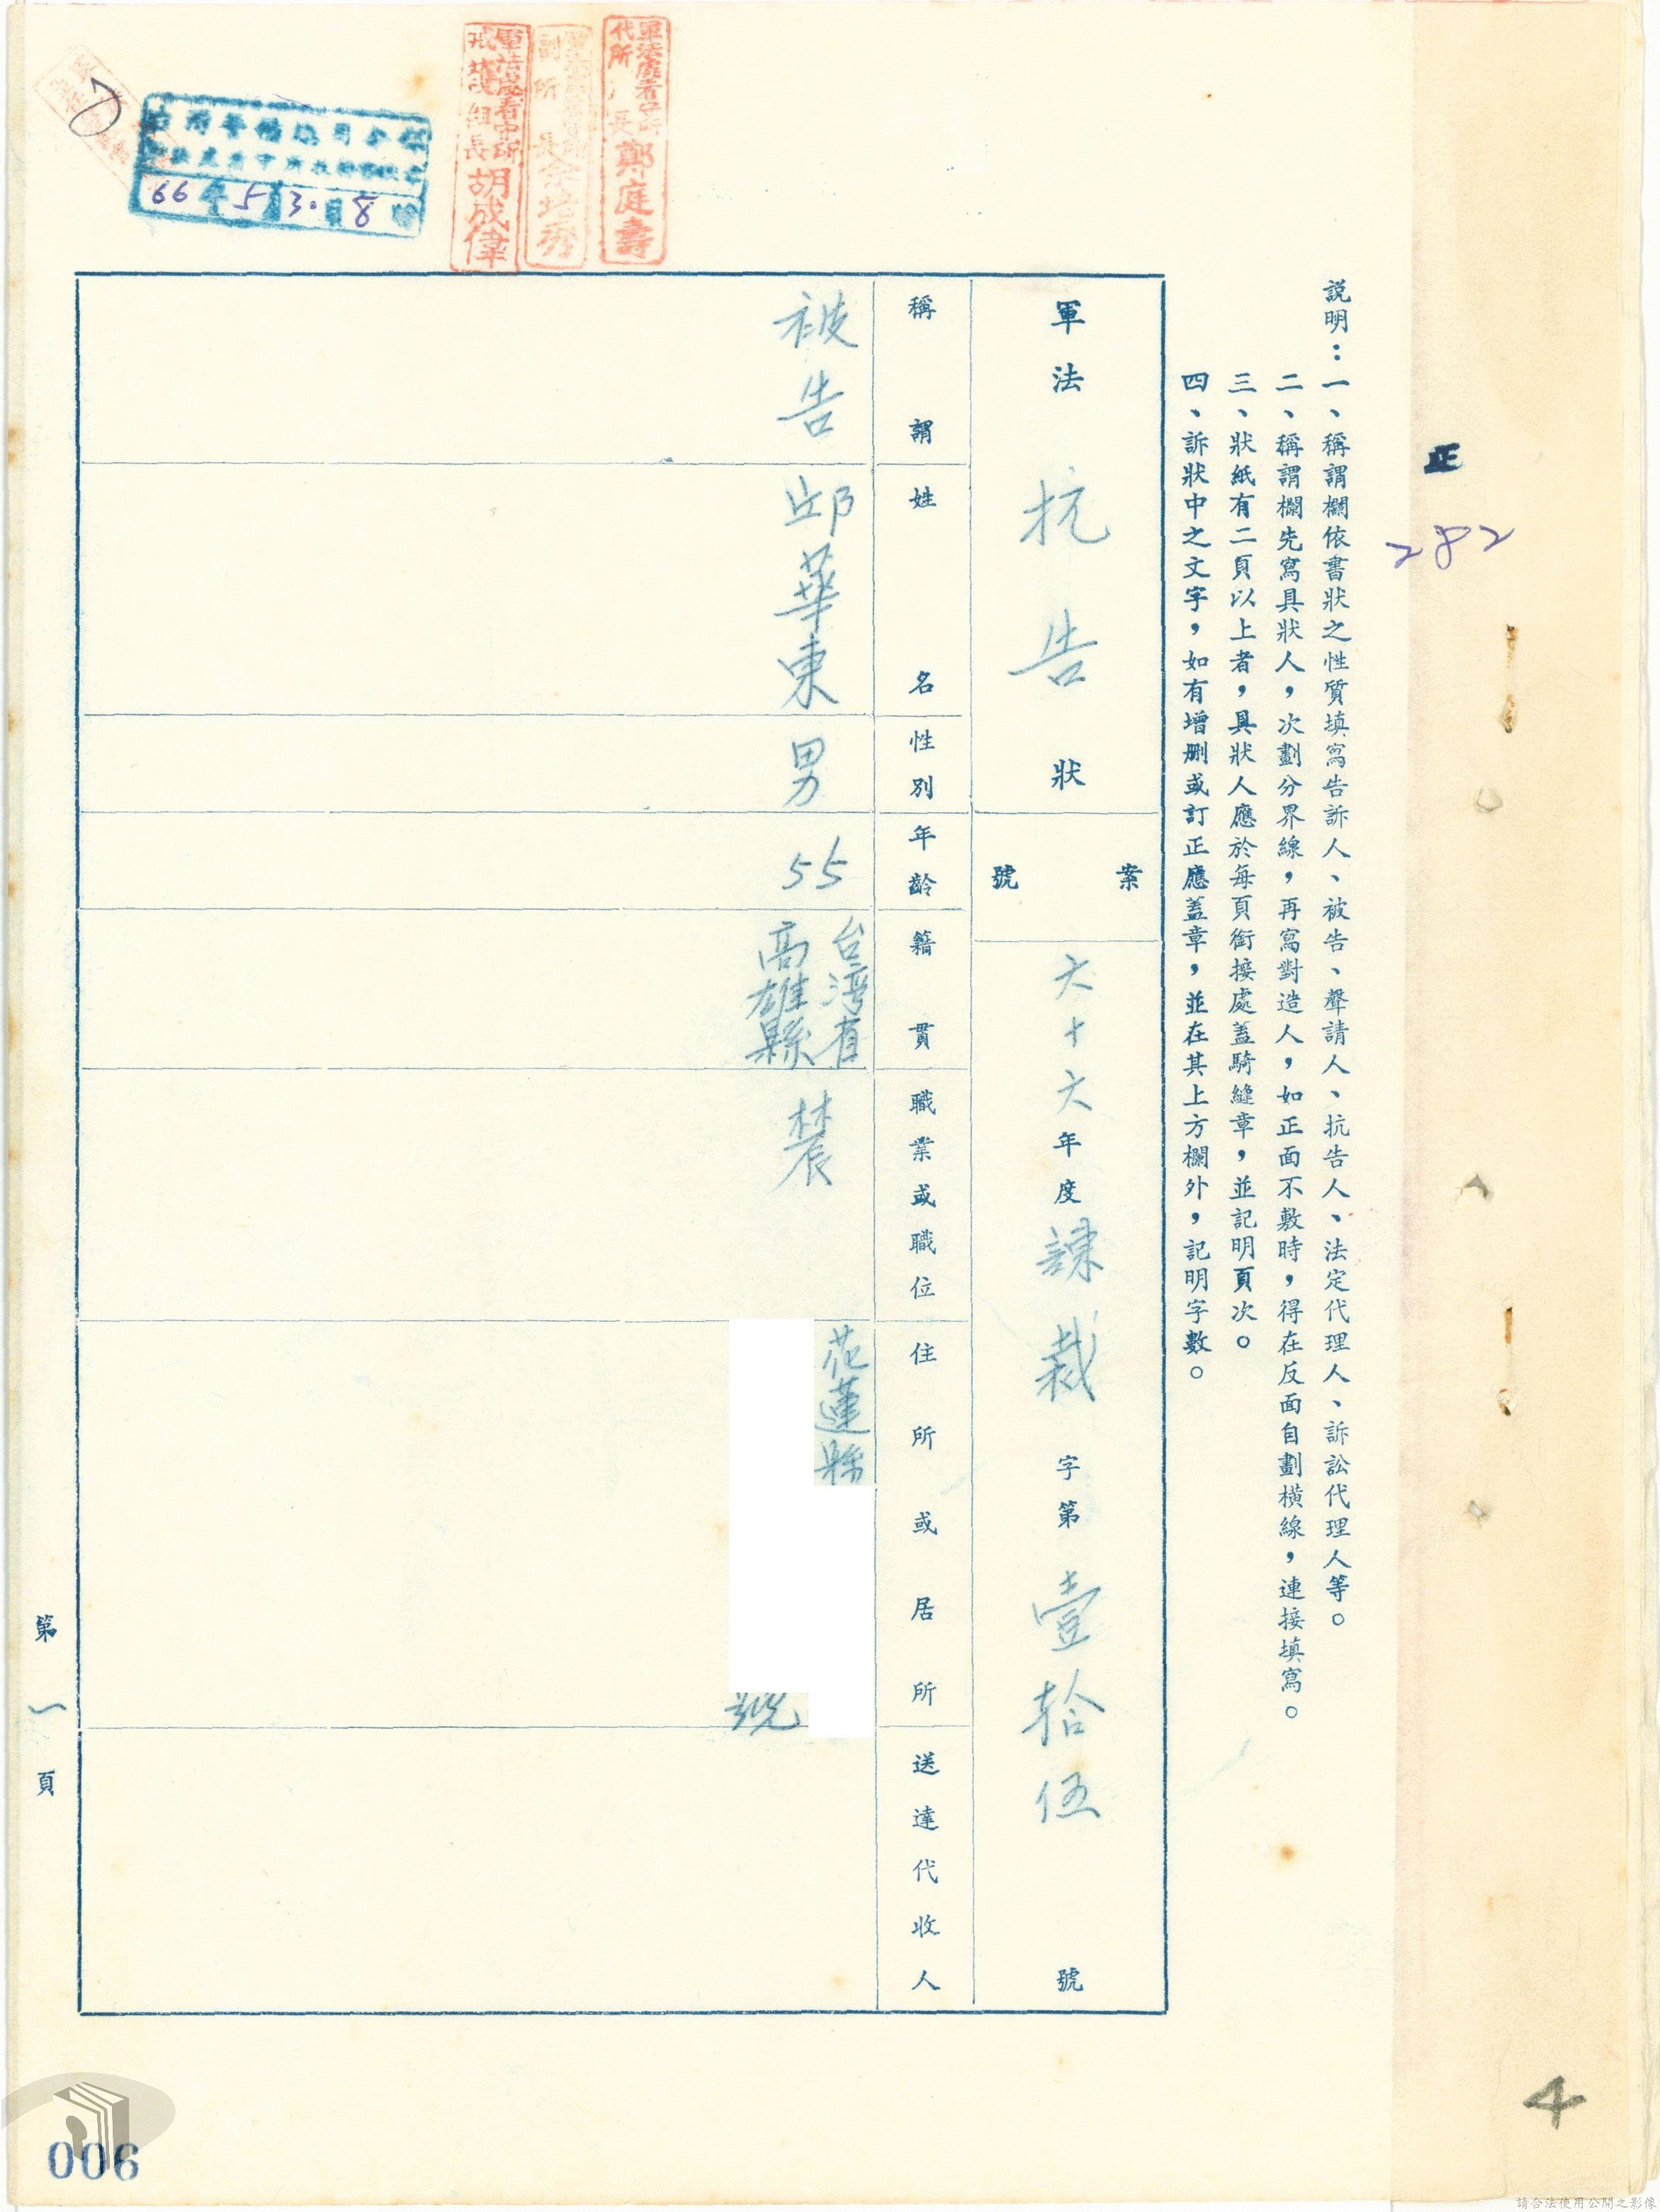 正
282
説明：一、稱謂欄依書狀之性質填寫告訴人、被告、聲請人、抗告人、法定代理人、訴訟代理人等。
二、稱謂欄先寫具狀人，次劃分界線，再寫對造人，如正面不敷時，得在反面自劃橫線，連接填寫。
三、狀紙有二頁以上者，具狀人應於每頁銜接處蓋騎縫章，並記明頁次。
四、訴狀中之文字，如有增刪或訂正應蓋章，並在其上方欄外，記明字數。
軍法抗告狀
案號
六十六年度諫裁字第壹拾伍號
稱謂
姓名
性別
年齡
籍貫
職業或職位
住所或居所
送達代收人
被告
邱華東
男
55
台灣省
高雄縣
農
花蓮縣
號
軍法處看守所
代所長鄭庭壽
副所長余培秀
軍法處看守所
戒護組長胡成偉
66年5月30日8時
第一頁
006
4
請合法使用公開之影像